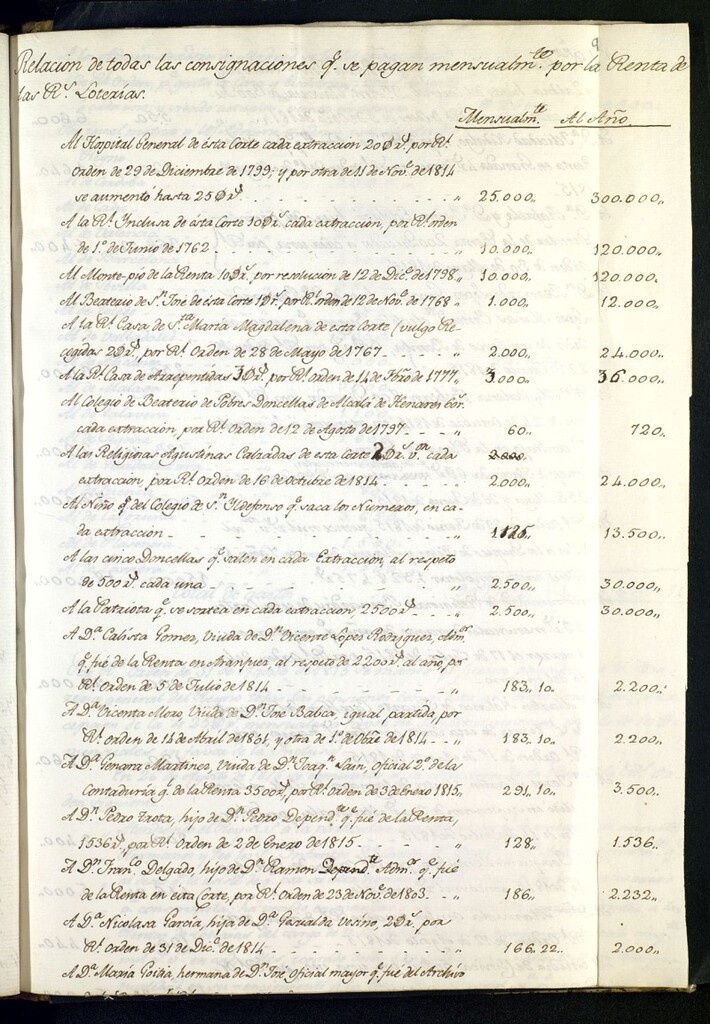 9
Relacion de todas las consignaciones q.e se pagan mensualm.te por la Renta de
las R.s Loterias.
Mensualm.te Al Año.
Al Hospital General de ésta Corte cada extraccion 20Ø r.s por R.l
Orden de 29 de Diciembre de 1799; y por otra de 11 de Nov.e de 1814
se aumentó hasta 25Ø r.s - - - „ 25.000„ 300.000„
A la R.l Inclusa de ésta Corte 10Ø r.s cada extraccion, por R.l orden
de 1.o de Junio de 1762 - - - „ 10.000„ 120.000„
Al Monte-pio de la Renta 10Ø r.s por resolucion de 12 de Dic.e de 1798 „ 10.000„ 120.000„
Al Beaterio de S.n José de ésta Corte 1Ø r.s por R.l orden de 12 de Nov.e de 1768 „ 1.000„ 12.000„
A la R.l Casa de S.ta María Magdalena de esta Corte (vulgo Re-
cogidas 2Ø r.s por R.l Orden de 28 de Mayo de 1767 - - - „ 2.000„ 24.000„
A la R.l Casa de Arrepentidas 3Ø r.s por R.l orden de 14 de Hbro de 1777„ 3.000„ 36.000„
Al Colegio de Beaterio de Pobres Doncellas de Alcalá de Henares 60 r.s
cada extraccion, por R.l Orden de 12 de Agosto de 1797 - - - „ 60„ 720„
A las Religiosas Agustinas Calzadas de esta Corte 2Ø r.s v.on cada
extraccion, por R.l Orden de 16 de Octubre de 1814 - - - „ 2.000„ 24.000„
Al Niño q.e del Colegio de S.n Ildefonso q.e saca los Numeros, en ca-
da extraccion - - - „ 1125„ 13.500„
A las cinco Doncellas q.e salen en cada Extraccion, al respeto
de 500 r.s cada una - - - „ 2.500„ 30.000„
A la Patriota q.e se sortea en cada extraccion, 2500 r.s - - „ 2.500„ 30.000„
A D.a Calista Gomez, Viuda de D.n Vicente Lopes Rodriguez, Adm.or
q.e fué de la Renta en Aranjuez, al respeto de 2200 r.s al año, por
R.l Orden de 5 de Julio de 1814 - - - „ 183„10„ 2.200„
A D.a Vicenta Moro, Viuda de D.n José Babca, igual partida, por
R.l orden de 14 de Abril de 1801, y otra de 1.o de Obre de 1814 - - „ 183„10„ 2.200„
A D.a Genara Martinez, Viuda de D.n Joaq.n Saín, oficial 2.o de la
Contaduría q.l de la Renta 3500 r.s, por R.l Orden de 3 de Enero 1815„ 291„10„ 3.500„
A D.n Pedro Trota, hijo de D.n Pedro Depend.te q.e fué de la Renta,
1536 r.s, por R.l Orden de 2 de Enero de 1815 - - - „ 128„ 1.536„
A D.n Fran.co Delgado, hijo de D.n Ramon Depend.te Adm.or q.e fué
de la Renta en esta Corte, por R.l Orden de 23 de Nov.e de 1803 - - „ 186„ 2.232„
A D.a Nicolasa García, hija de D.a Gesualda Vosino, 2Ø r.s, por
R.l Orden de 31 de Dic.e de 1814 - - - „ 166„22„ 2.000„
A D.a María Goitia, hermana de D.n José oficial mayor q.e fué del Archivo